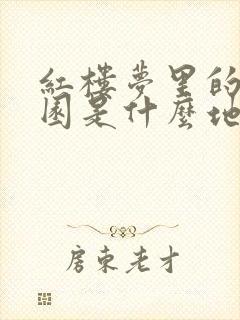 紅樓夢里的
園是什麼地
房東老才